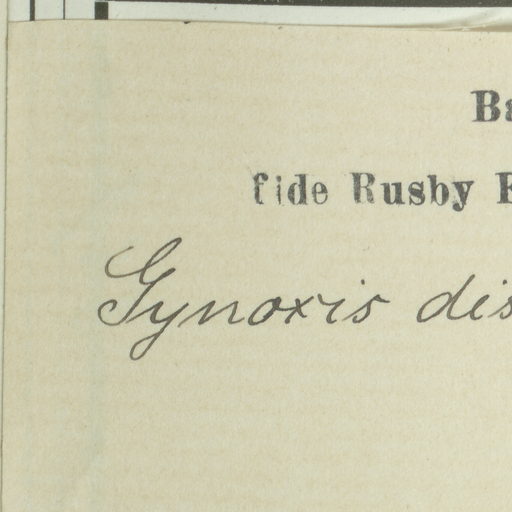 Ba
fide Rusby
Gynoxis dis